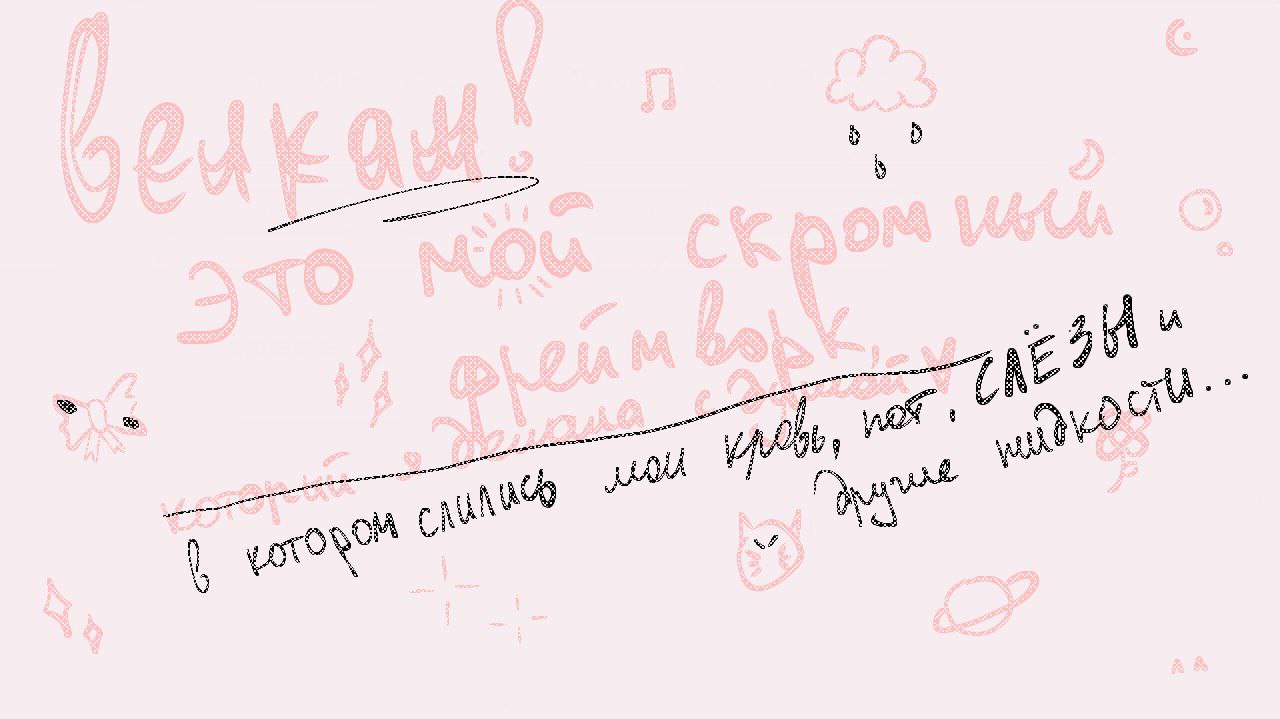 велкам!
это мой скромный
фреймворк
который я делала с душой
в котором слились мои кровь, пот, СЛЁЗЫ и
другие жидкости...